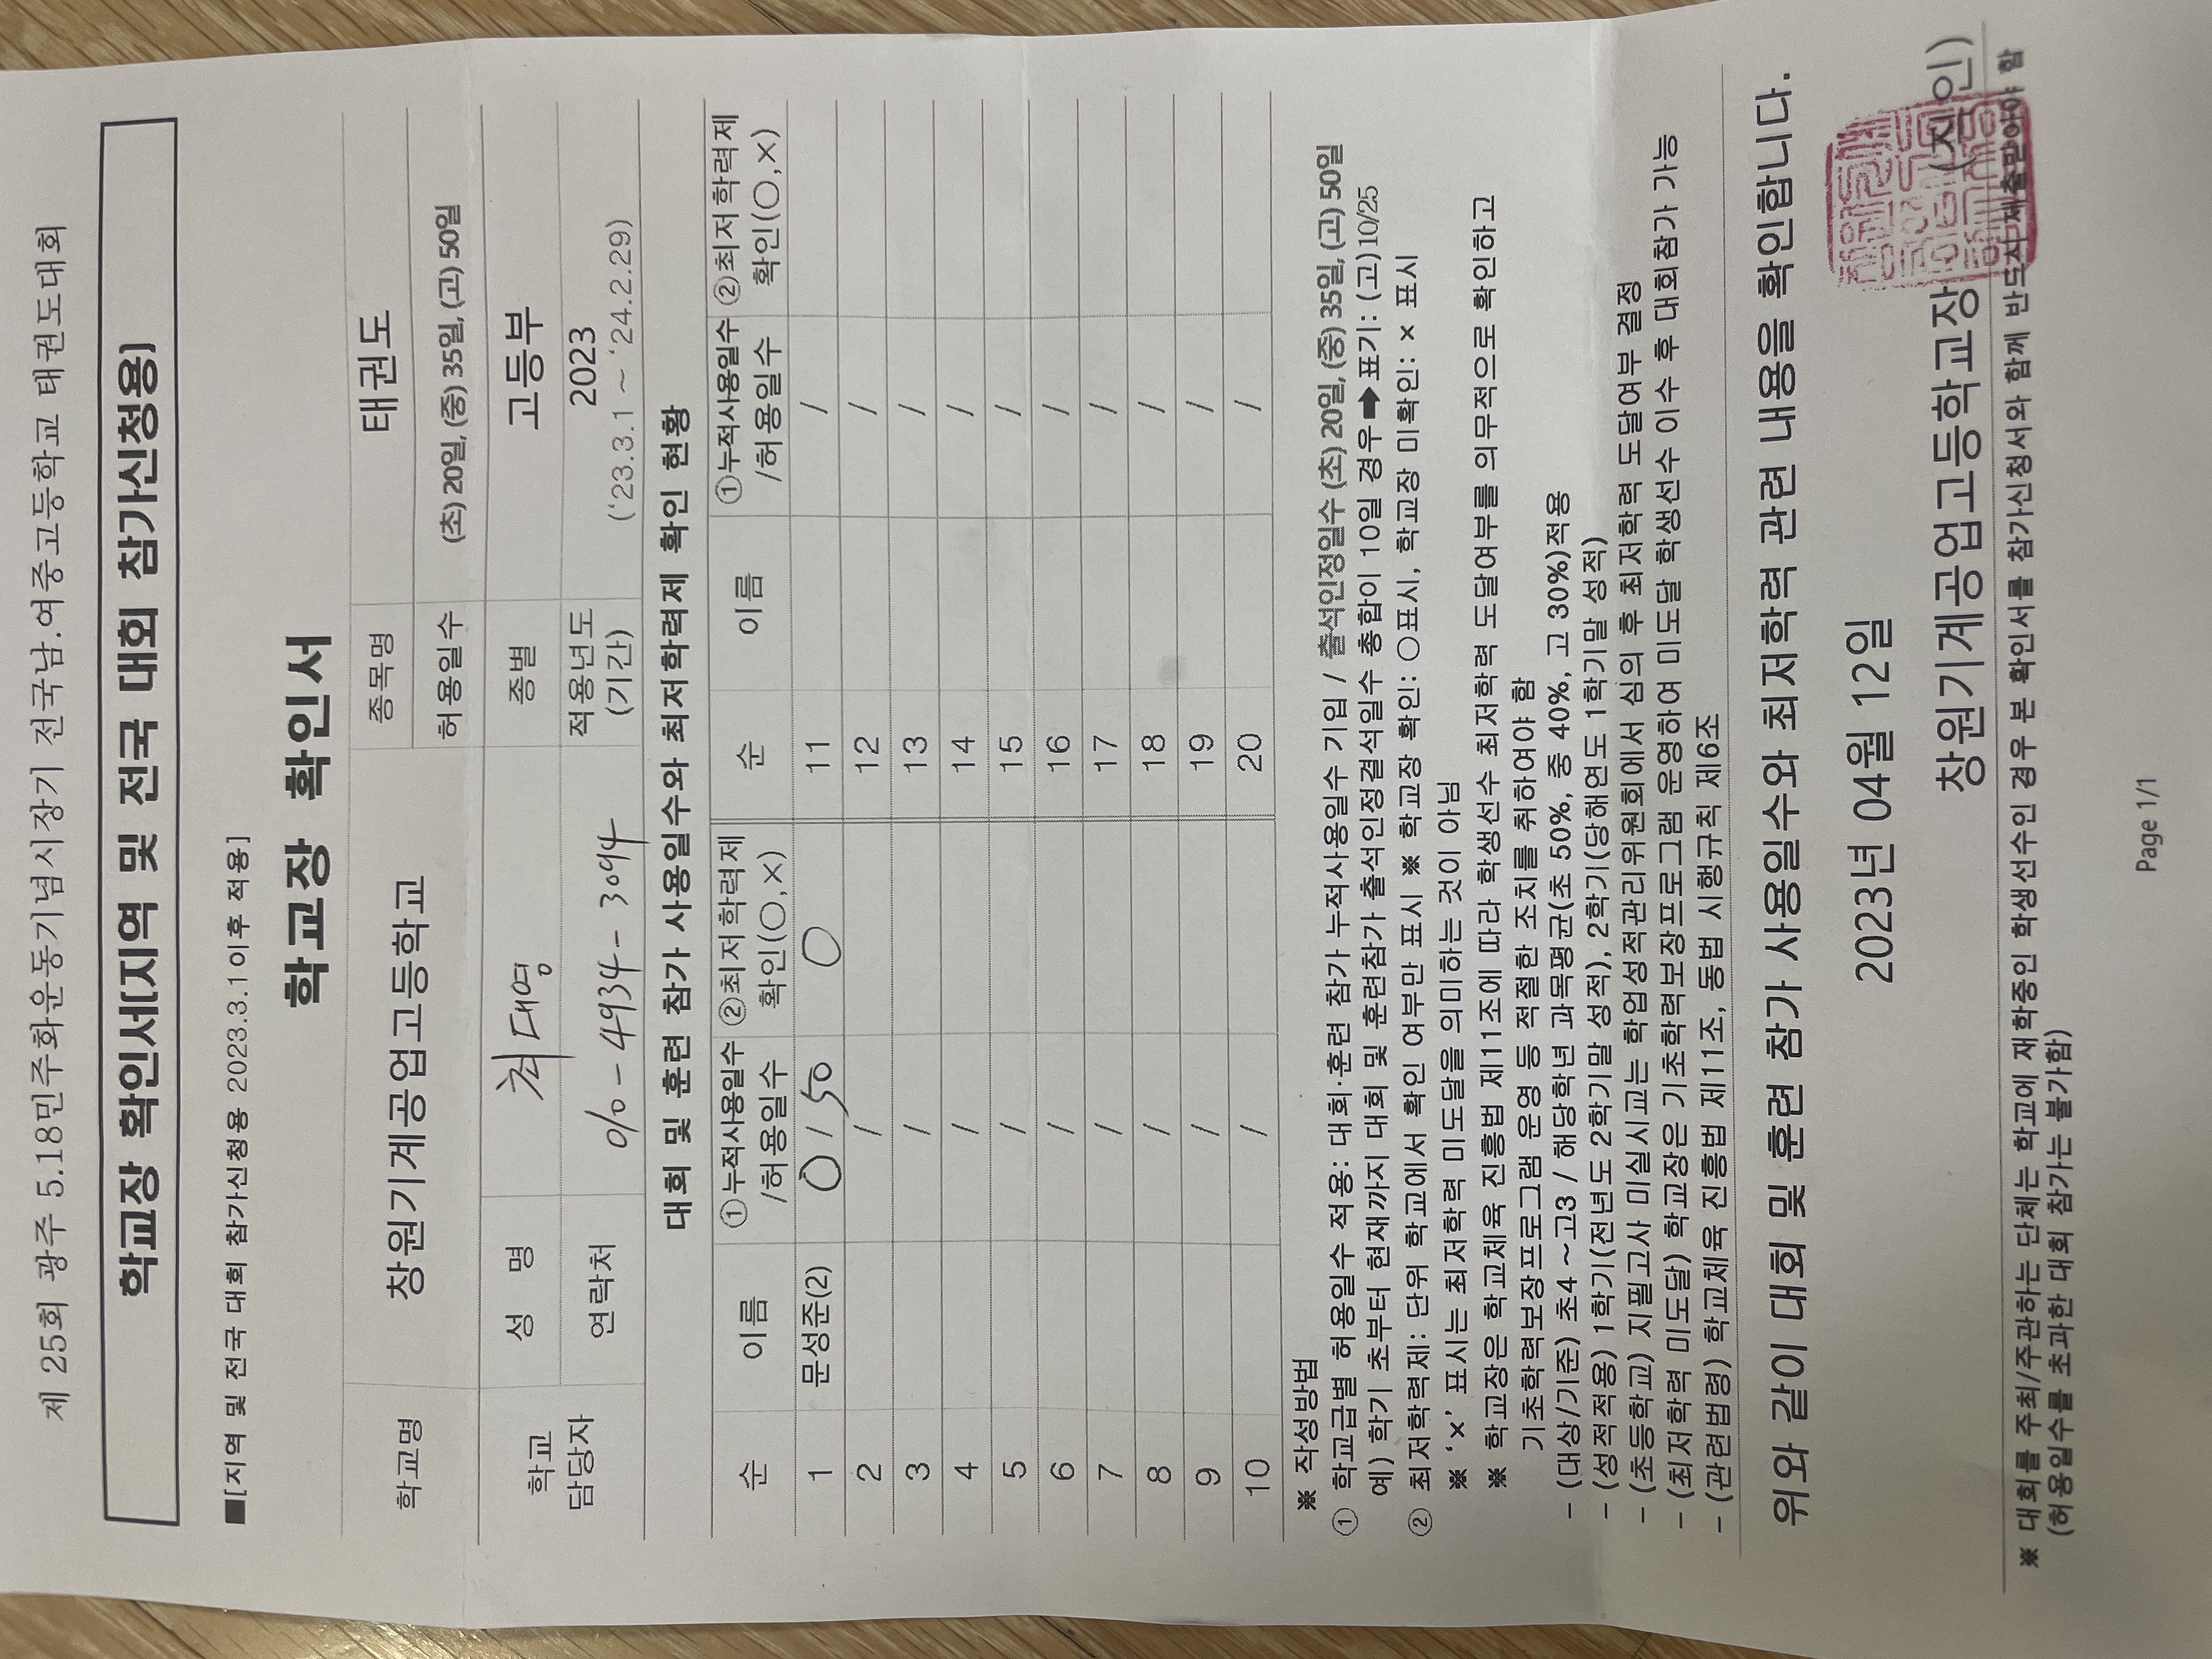 제 25회 광주 5.18민주화운동기념시장기 전국남.여중고등학교 태권도대회
학교장 확인서[지역 및 전국 대회 참가신청용]
■[지역 및 전국 대회 참가신청용 2023.3.1이후 적용]
학교장 확인서
학교명 창원기계공업고등학교 종목명 태권도
허용일수 (초) 20일, (중) 35일, (고) 50일
학교 담당자 성 명 최대영 종별 고등부
연락처 010-4934-3094 적용년도 (기간) 2023 ('23.3.1 ~ '24.2.29)
대회 및 훈련 참가 사용일수와 최저학력제 확인 현황
순 이름 ①누적사용일수 /허용일수 ②최저학력제 확인(○,×) 순 이름 ①누적사용일수 /허용일수 ②최저학력제 확인(○,×)
1 문성준(2) 0 / 50 ○ 11 /
2 / 12 /
3 / 13 /
4 / 14 /
5 / 15 /
6 / 16 /
7 / 17 /
8 / 18 /
9 / 19 /
10 / 20 /
※ 작성방법
① 학교급별 허용일수 적용: 대회·훈련 참가 누적사용일수 기입 / 출석인정일수 (초) 20일, (중) 35일, (고) 50일
예) 학기 초부터 현재까지 대회 및 훈련참가 출석인정결석일수 총합이 10일 경우➡표기: (고)10/25
② 최저학력제: 단위 학교에서 확인 여부만 표시 ※ 학교장 확인: ○표시, 학교장 미확인: × 표시
※ '×' 표시는 최저학력 미도달을 의미하는 것이 아님
※ 학교장은 학교체육 진흥법 제11조에 따라 학생선수 최저학력 도달여부를 의무적으로 확인하고
기초학력보장프로그램 운영 등 적절한 조치를 취하여야 함
- (대상/기준) 초4 ~고3 / 해당학년 과목평균(초 50%, 중 40%, 고 30%)적용
- (성적적용) 1학기(전년도 2학기말 성적), 2학기(당해연도 1학기말 성적)
- (초등학교) 지필고사 미실시교는 학업성적관리위원회에서 심의 후 최저학력 도달여부 결정
- (최저학력 미도달) 학교장은 기초학력보장프로그램 운영하여 미도달 학생선수 이수 후 대회참가 가능
- (관련법령) 학교체육 진흥법 제11조, 동법 시행규칙 제6조
위와 같이 대회 및 훈련 참가 사용일수와 최저학력 관련 내용을 확인합니다.
2023년 04월 12일
창원기계공업고등학교장 (직인)
※ 대회를 주최/주관하는 단체는 학교에 재학중인 학생선수인 경우 본 확인서를 참가신청서와 함께 반드시 제출받아야 함
(허용일수를 초과한 대회 참가는 불가함)
Page 1/1